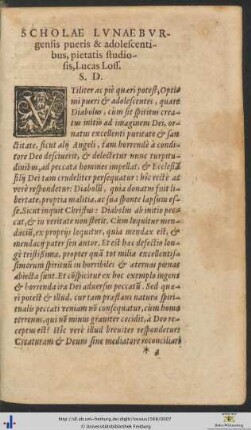 SCHOLAE LVNAEBVR-
gensis pueris & adolescenti-
bus, pietatis studio-
sis, Lucas Loss.
S. D.
VTiliter ac piè quæri potest, Optimi
pueri & adolescentes, quare
Diabolus, cum sit spiritus creatus
initio ad imaginem Dei, ornatus
excellenti puritate & sanctitate,
sicut alij Angeli, tam horrendè à conditore
Deo desciuerit, & delectetur nunc turpitudinibus,
ad peccata homines impellat, & Ecclesiã
filij Dei tam crudeliter persequatur: hîc rectè ac
verè respondetur: Diabolũ, quia donatus fuit libertate,
propria malitia, ac sua sponte lapsum esse.
Sicut inquit Christus: Diabolus ab initio peccat,
& in veritate non stetit. Cùm loquitur mendaciũ,
ex proprijs loquitur, quia mendax est, &
mendacij pater seu autor. Et est hæc defectio longè
tristissima, propter quã tot milia excellentissimorum
spirituũ in horribiles & æternas pœnas
abiecta sunt. Et cõspicitur ex hoc exemplo ingens
& horrenda ira Dei aduersus peccatũ. Sed quæri
potest & illud, cur tam præstans natura spiritualis
peccati veniam nõ consequatur, cùm homo
terrenus, qui nõ minus grauiter cecidit, à Deo receptus
est? Hîc verè illud breuiter respondetur:
Creaturam & Deum sine mediatore reconciliari
* 2
© Universitätsbibliothek Freiburg